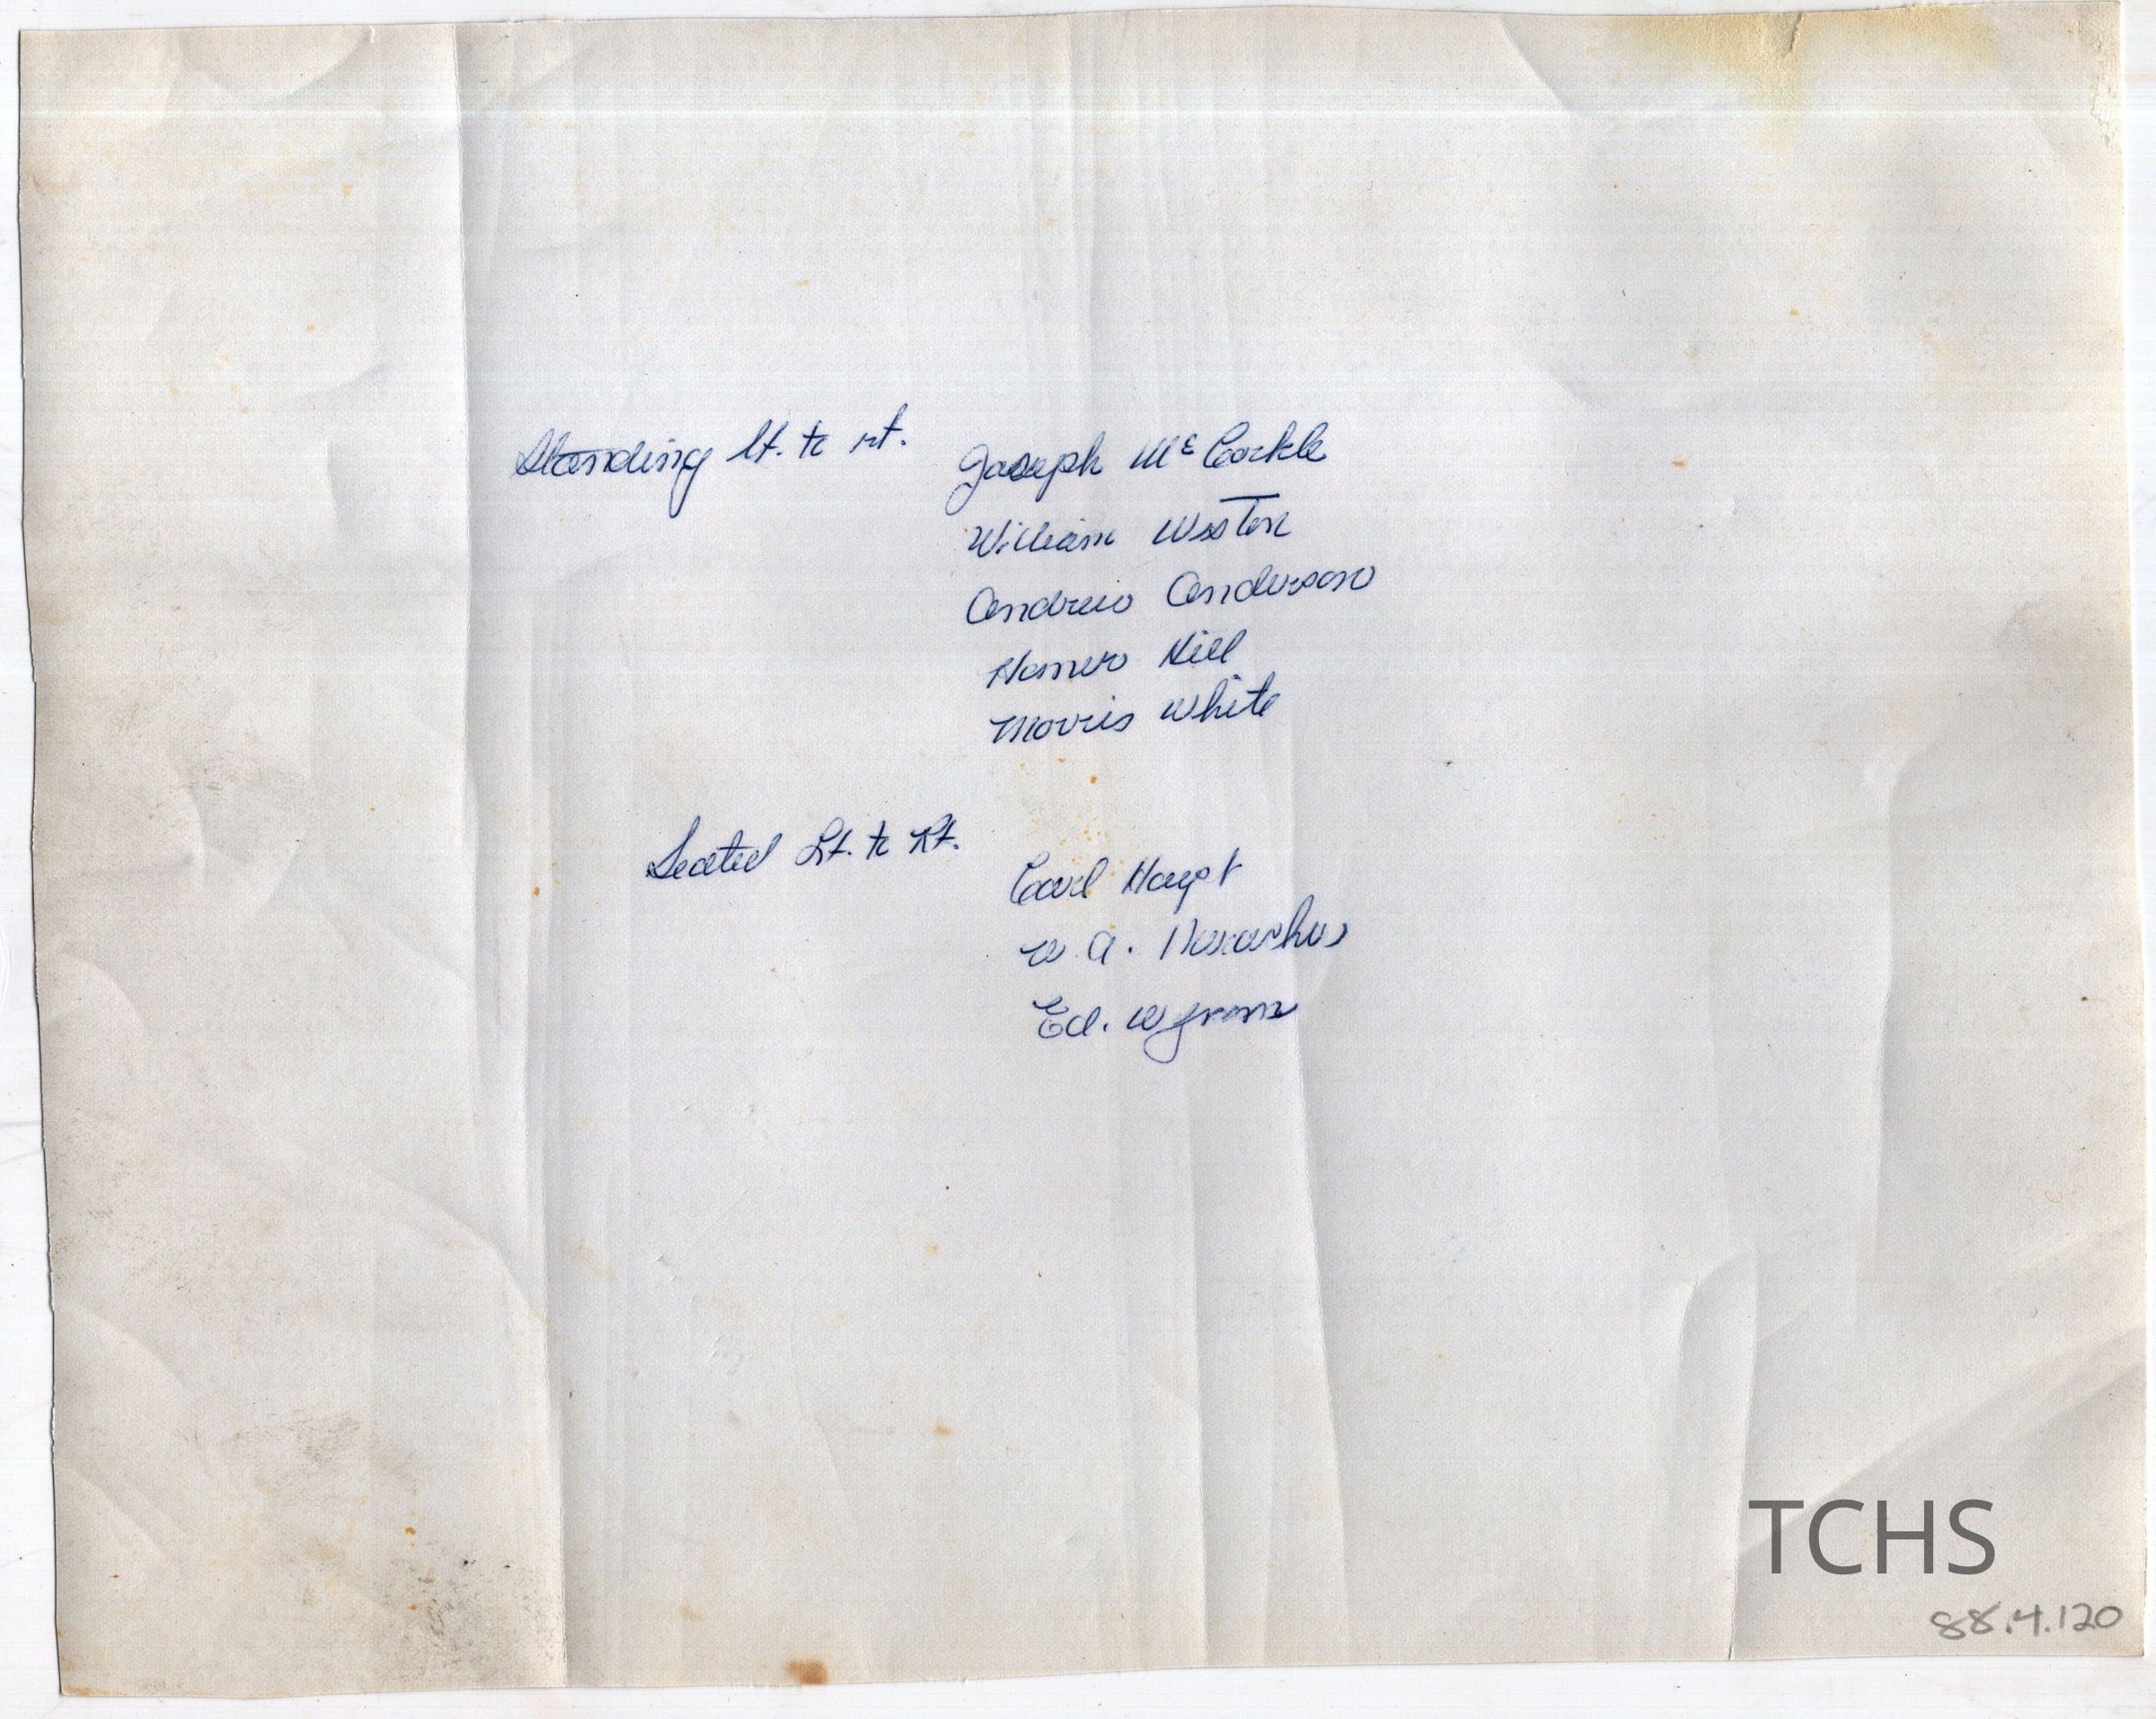 Standing lt. to rt.
Joseph McCorkle
William Weston
Andrew Anderson
Homer Hill
Morris White
Seated Lt. to Rt.
Carl Haupt
W. A.
Ed.
TCHS
88.4.120